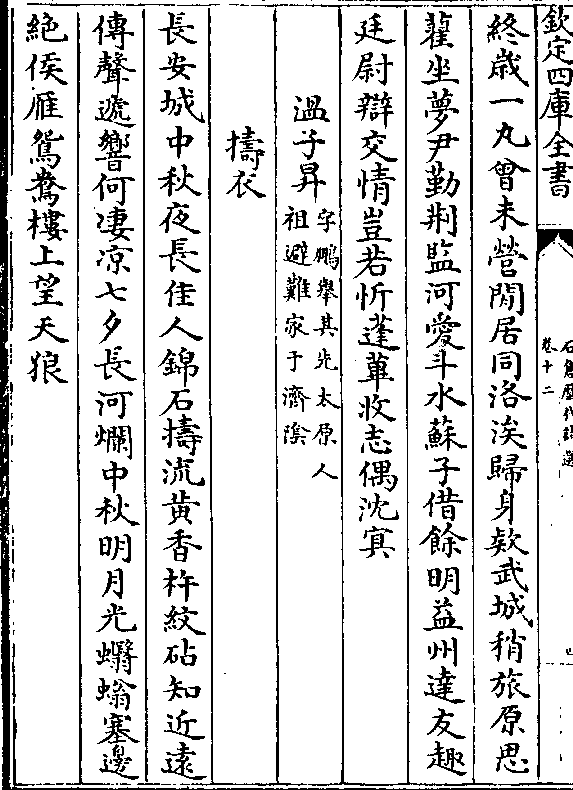 欽定四庫全書
石倉歷代詩選
卷十二
終歳一丸曾未營閒居同洛涘歸身欵武城稍旅原思
藿坐夢尹勤荆監河愛斗水蘇子借餘明益州達友趣
廷尉辯交情豈若忻蓬蓽收志偶沈㝠
溫子昇字鵬舉其先太原人
祖避難家于濟隂
擣衣
長安城中秋夜長佳人錦石擣流黄香杵紋砧知近逺
傳聲遞響何淒凉七夕長河爛中秋明月光蠮螉塞邊
絶𠋫雁鴛鴦樓上望天狼